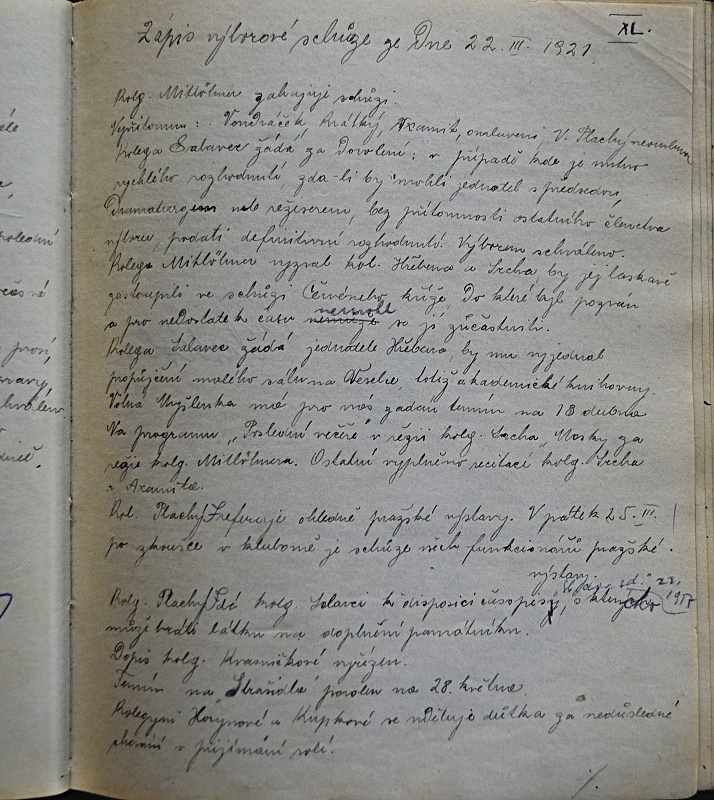 XL.
Zápis výborové schůze ze Dne 22. III. 1921.
Kolg. Mitlöhner zahajuje schůzi.
Vpřítomni: Vondráček Krátký, Axamit, omluveni V. Plachý neomluven
Kolega Salavec žádá za Dovolení; v případě kde je nutno
rychlého rozhodnutí, zda-li by mohli jednatel s předsedou,
Dramaturgem neb režiserem, bez přítomnosti ostatního členstva
výboru, podati definitivní rozhodnutí. Výborem schváleno.
Kolega Mitlöhner vyzval kol. Hřebena a Srcha by jej laskavě
zastoupili ve schůzi Červeného kříže, Do které byl pozván
a pro neDostatek času nemohl se jí zůčastniti.
Kolega Salavec žádá jednatele Hřebena, by mu vyjednal
propůjčení malého sálu na Veselce, totiž akademické knihovny.
Volná Myšlenka má pro nás zadán termín na 18 dubna
Na programu „Poslední večeře" v režii kolg. Srcha „Masky za
režie kolg. Mitlöhnera. Ostatní vyplněno recitací kolg. Srcha
a Axamita.
Kol. Plachý F. referuje ohledně pražské výstavy. V pátek 25. III.
po zkoušce v klubovně je schůze všech funkcionářů pražské
výstavy.
Kolg. Plachý F. dá kolg. Salavci k disposici časopis, z kterých
může bráti látku na doplnění památníku.
Dopis kolg. Krasničkové vyřízen.
Termín na „Strašidla" povolen na 28. května.
Kolegyni Horynové a Kupkové se uděluje důtka za nedůsledné
chování v přijímání rolí.